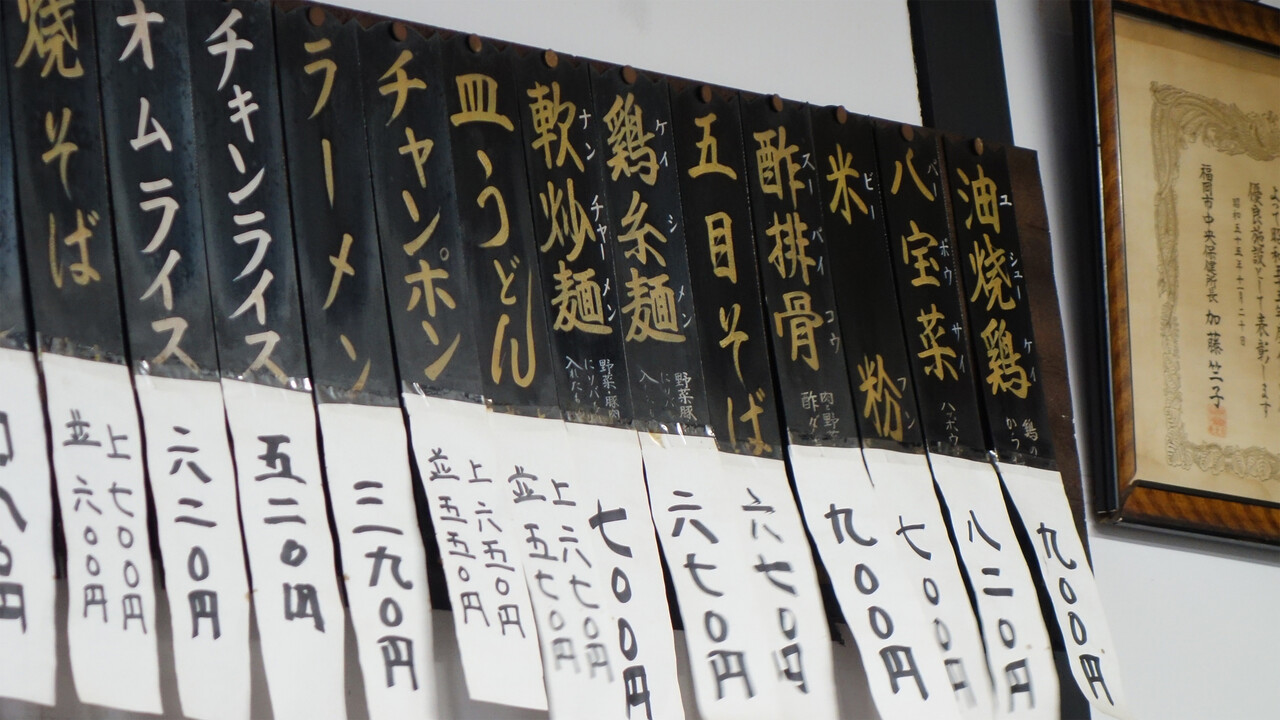 優良施設として表彰します
昭和五十五年十一月二十日
福岡市中央保健所長 加藤
油焼鶏
ユシューケイ
九〇〇円
八宝菜
バーボウサイ
八二〇円
米粉
ビーフン
七〇〇円
酢排骨
スーパイコウ
九〇〇円
五目そば
六七〇円
鶏糸麺
ケイシメン
野菜豚
六七〇円
軟炒麺
ナンチャーメン
野菜豚肉
七〇〇円
皿うどん
上 六七〇円
並 五七〇円
チャンポン
上 六五〇円
並 五五〇円
ラーメン
三九〇円
チキンライス
五二〇円
オムライス
六二〇円
焼そば
上 七〇〇円
並 六〇〇円